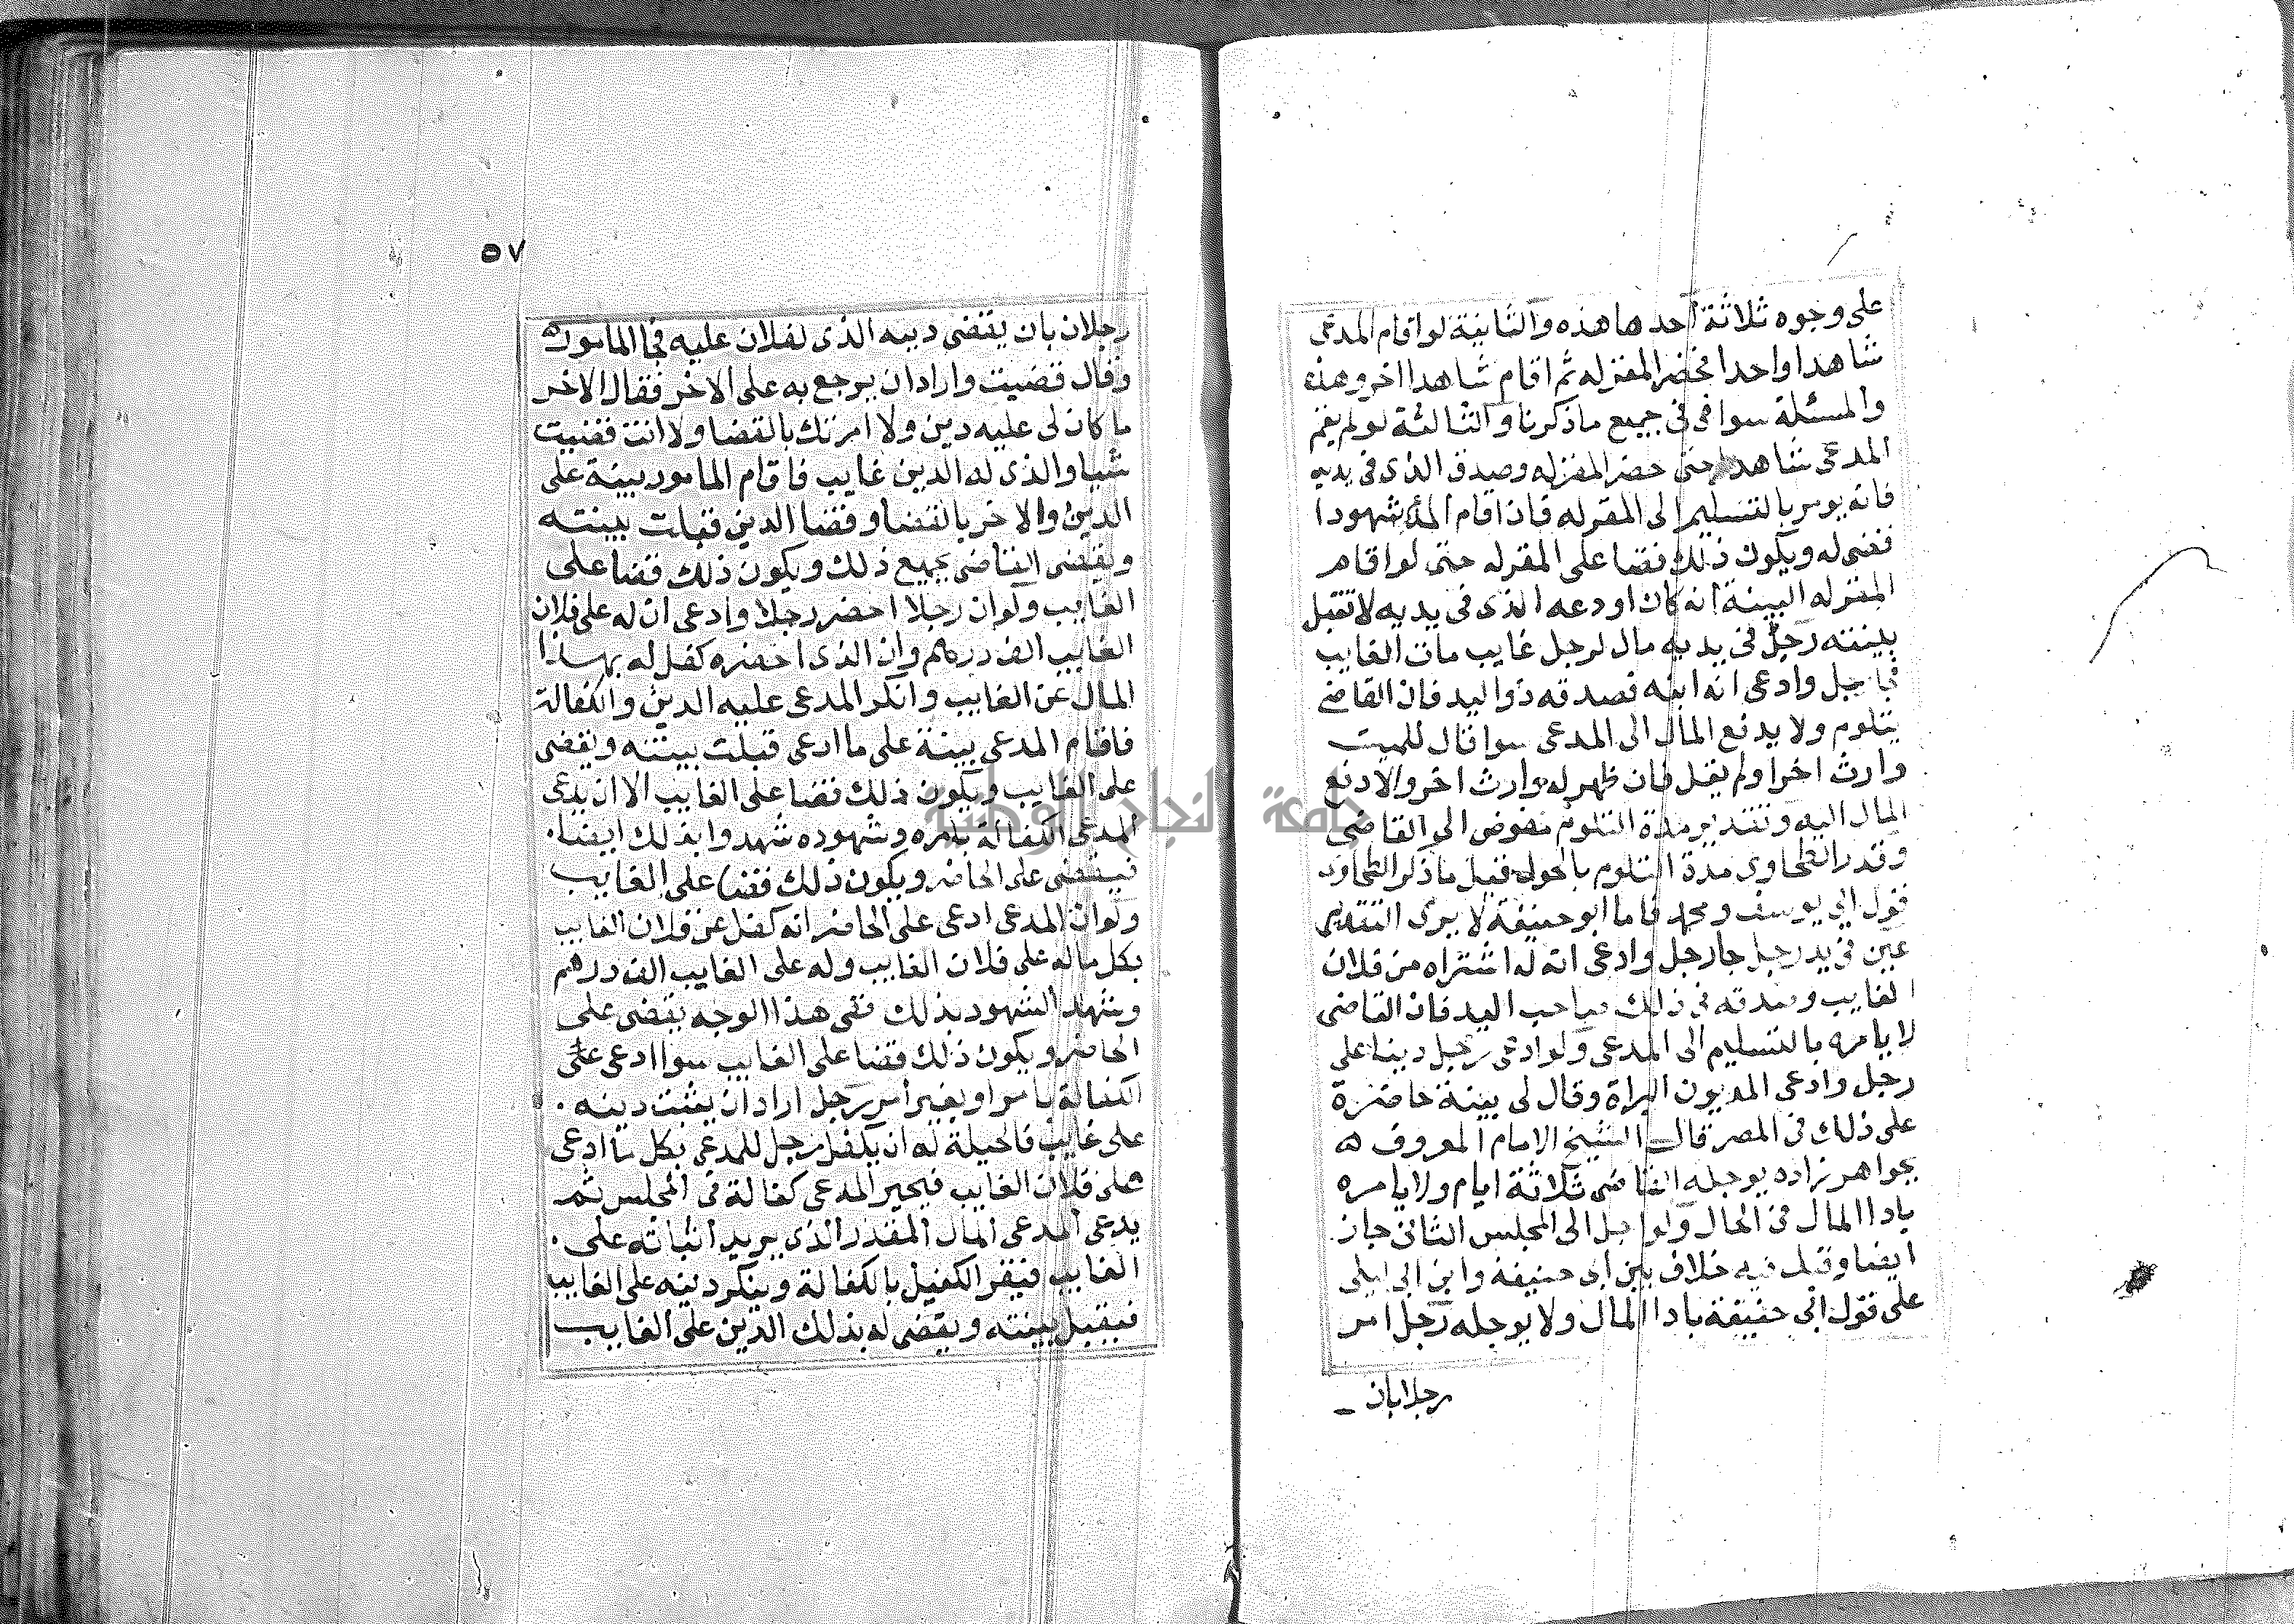 على وجوه ثلاثة احدها هذه والثانية لو اقام المدعى
شاهدا واحدا فحضر المقر له ثم اقام شاهدا اخر وهذه
والمسئلة سوا فى جميع ما ذكرنا والثالثة لو لم يقم
المدعى شاهدا حتى حضر المقر له وصدق الذى فى يديه
فانه يومر بالتسليم الى المقر له فان اقام شهودا
فقضى له ويكون ذلك قضا على المقر له حتى لو اقام
المقر له البينة انه كان اودعه الذى فى يديه لا تقبل
بينته رجل فى يديه مال لرجل غايب مات الغايب
فجا رجل وادعى انه ابنه فصدقه ذو اليد فان القاضى
يتلوم ولا يدفع المال الى المدعى سوا قال للميت
وارث اخر او لم يقل فان ظهر له وارث اخر والا دفع
المال اليه وتقدير مدة التلوم مفوض الى القاضى
وقدر الطحاوى مدة التلوم بالحول قيل ما ذكر الطحاوى
قول ابى يوسف ومحمد فاما ابو حنيفة لا يرى التقدير
عين فى يد رجل جا رجل وادعى انه له اشتراه من فلان
الغايب وصدقه فى ذلك صاحب اليد فان القاضى
لا يامره بالتسليم الى المدعى ولو ادعى رجل دينا على
رجل وادعى المديون البراة وقال لى بينة حاضرة
على ذلك فى المصر قال الشيخ الامام المعروف
بجواهر زاده يوجله القاضى ثلاثة ايام ولا يامره
بادا المال فى الحال ولو اجل الى المجلس الثانى جاز
ايضا وقيل فيه خلاف بين ابى حنيفة وابن ابى ليلى
على قول ابى حنيفة بادا المال ولا يوجله رجل امر
رجلا بان
٥٧
رجلان بان يقضى دينه الذى لفلان عليه فجا المامور
وقال قضيت واراد ان يرجع به على الاخر فقال الاخر
ما كان لى عليه دين ولا امرتك بالقضا ولا انت قضيت
شيا والذى له الدين غايب فاقام المامور بينة على
الدين والاخر بالقضا وقضا الدين قبلت بينته
ويقضى القاضى بجميع ذلك ويكون ذلك قضا على
الغايب ولو ان رجلا احضر رجلا وادعى ان له على فلان
الغايب الف درهم وان الذى احضره كفل له بهذا
المال عن الغايب وانكر المدعى عليه الدين والكفالة
فاقام المدعى بينة على ما ادعى قبلت بينته ويقضى
على الغايب ويكون ذلك قضا على الغايب الا ان يدعى
المدعى الكفالة بامره وشهوده شهدوا بذلك ايضا
فيقضى على الحاضر ويكون ذلك قضا على الغايب
ولو ان المدعى ادعى على الحاضر انه كفل عن فلان الغايب
بكل ماله على فلان الغايب وله على الغايب الف درهم
وشهد الشهود بذلك ففى هذا الوجه يقضى على
الحاضر ويكون ذلك قضا على الغايب سوا ادعى على
الكفالة بامر او بغير امر رجل اراد ان يثبت دينه
على غايب فالحيلة له ان يكفل رجل للمدعى بكل ما ادعى
على فلان الغايب فيجيز المدعى كفالة فى المجلس ثم
يدعى المدعى المال المقدر الذى يريد اثباته على
الغايب فيقر الكفيل بالكفالة وينكر دينه على الغايب
فيقبل بينته ويقضى له بذلك الدين على الغايب
جامعة النجاح الوطنية